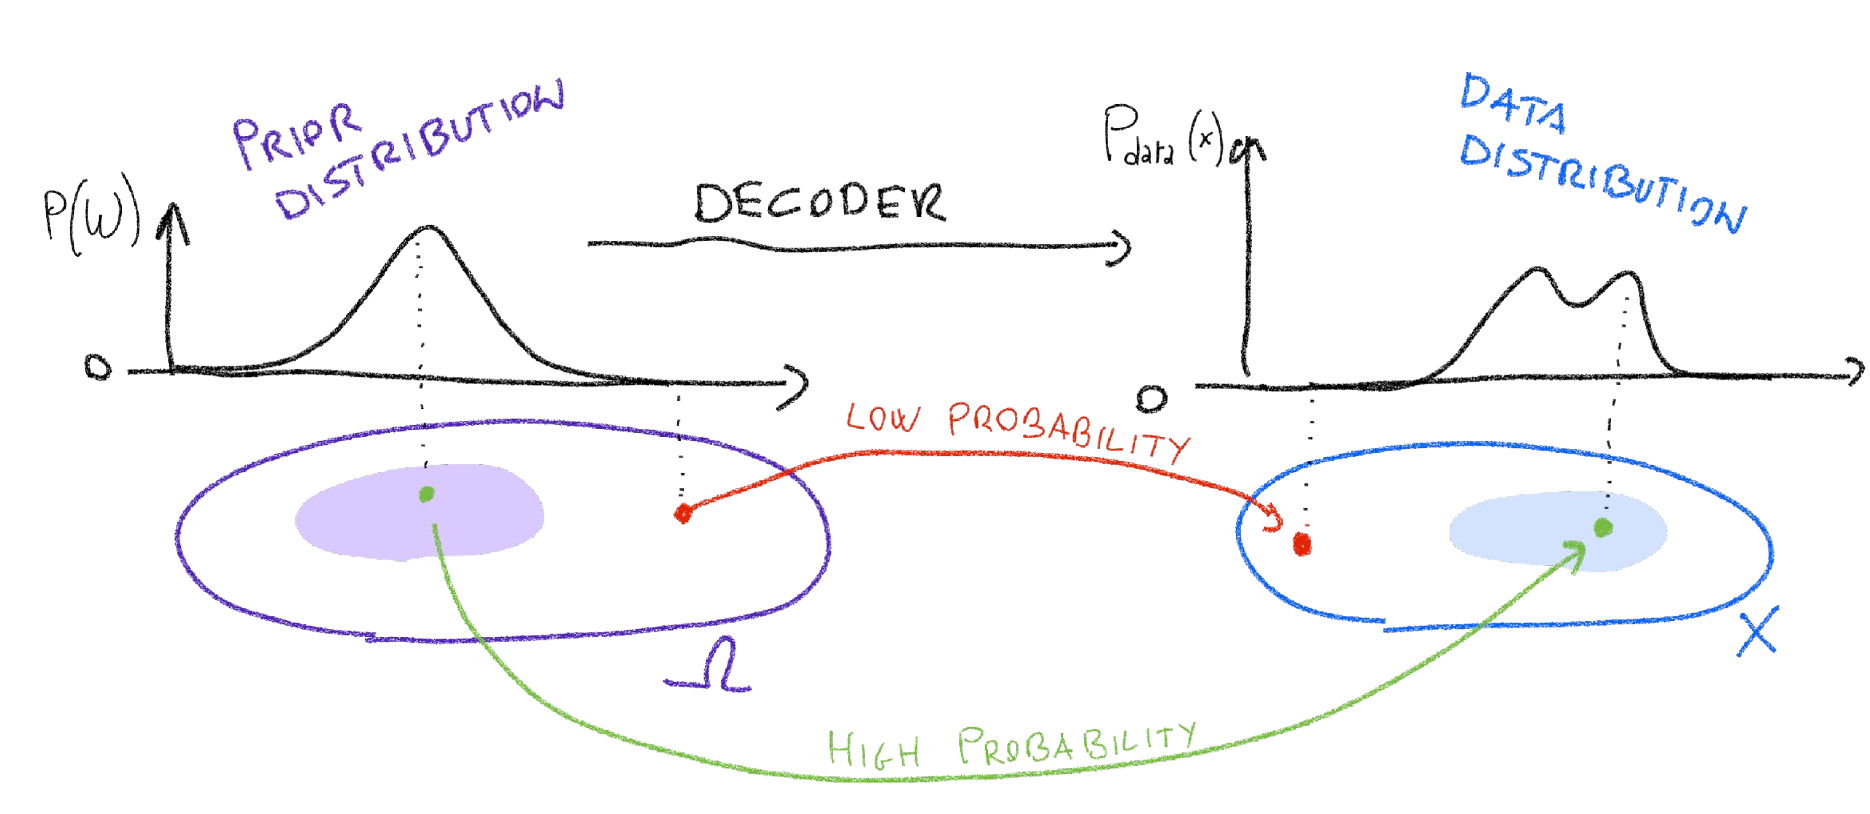 PRIOR
DISTRIBUTION
P(W)
0
DECODER
Pdata (x)
DATA
DISTRIBUTION
0
LOW PROBABILITY
Ω
X
HIGH PROBABILITY